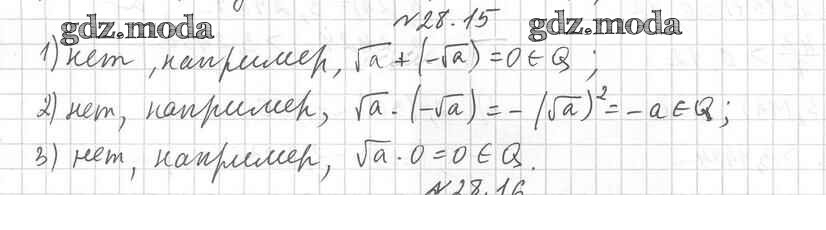 gdz.moda N28.15 gdz.moda
1) нет, например, √a + (-√a) = 0 ∈ Q ;
2) нет, например, √a · (-√a) = - (√a)² = -a ∈ Q;
3) нет, например, √a · 0 = 0 ∈ Q.
N28.16